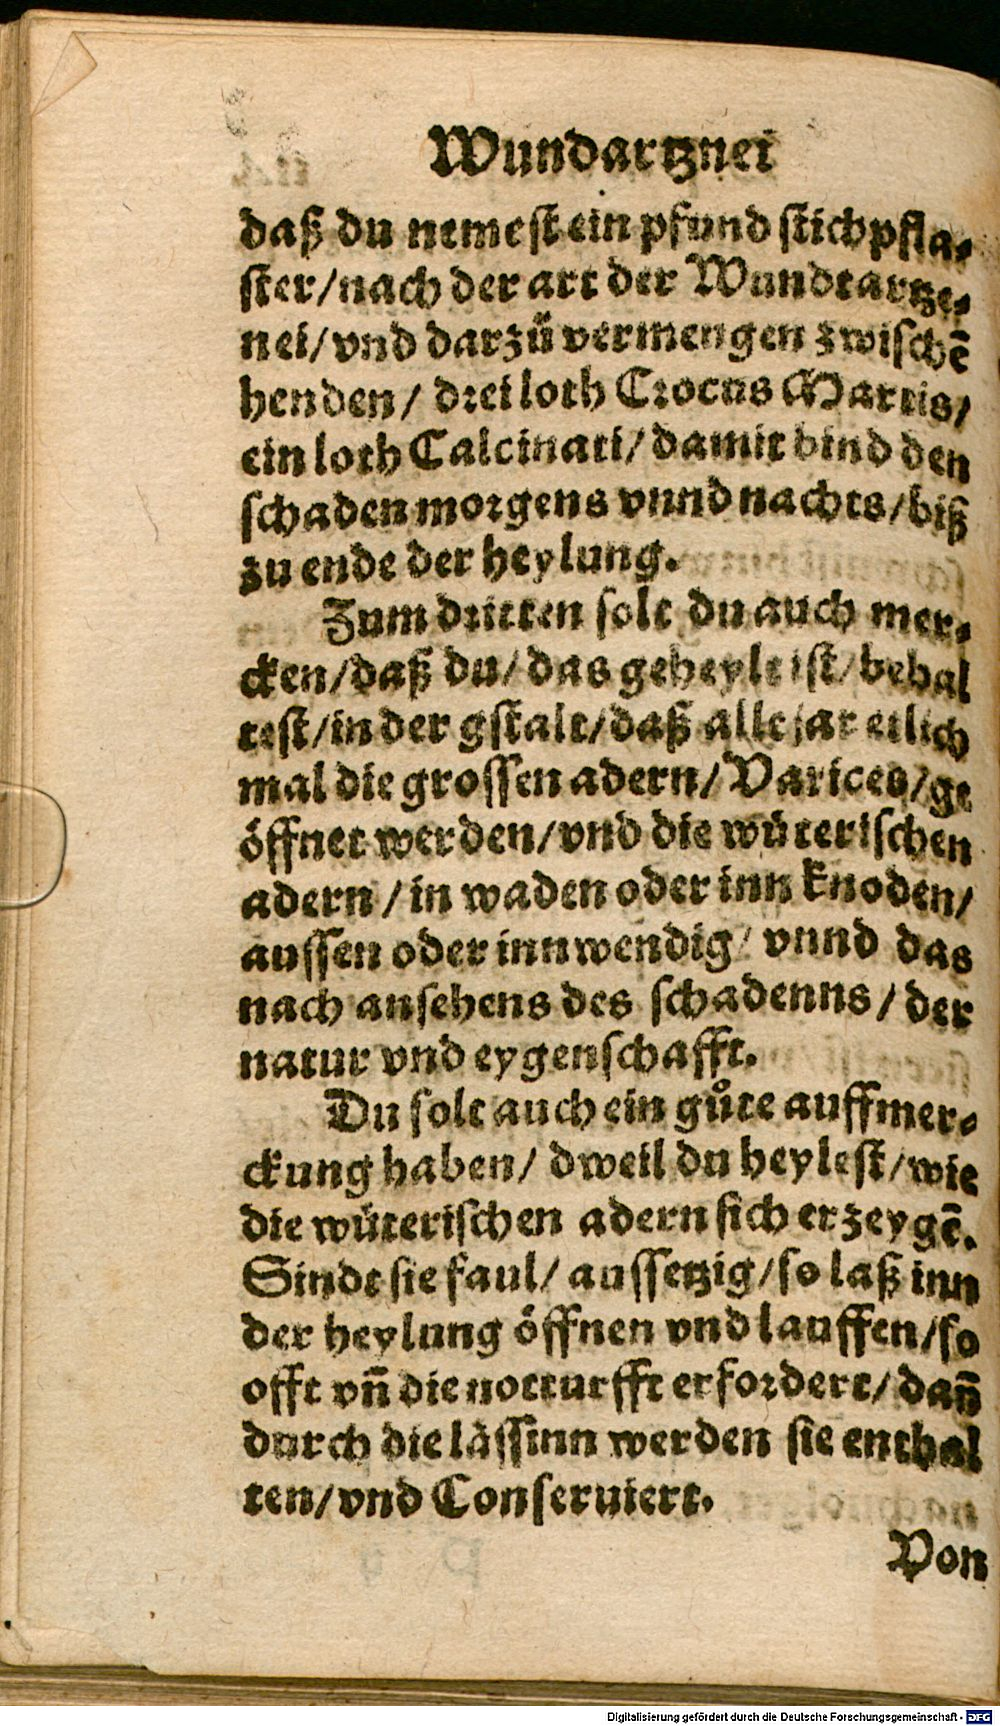 Wundartznei
daß du nemest ein pfund stichpfla⸗
ster/nach der art der Wundtartze⸗
nei/vnd darzů vermengen zwischẽ
henden/ drei loth Crocus Martis/
ein loth Calcinati/damit bind den
schaden morgens vnnd nachts/biß
zu ende der heylung.
Zum dritten solt du auch mer⸗
cken/daß du/das geheylt ist/behal
test/in der gstalt/daß alle jar etlich
mal die grossen adern/Varices/ge
öffnet werden/vnd die wüterischen
adern/in waden oder inn knoden/
aussen oder innwendig/ vnnd das
nach ansehens des schadenns/der
natur vnd eygenschafft.
Du solt auch ein gůte auffmer⸗
ckung haben/ dweil du heylest/wie
die wüterischen adern sich erzeygẽ.
Sindt sie faul/ aussetzig/so laß inn
der heylung öffnen vnd lauffen/so
offt vñ die notturfft erfordert/dañ
durch die lässinn werden sie enthal
ten/vnd Conseruiert.
Von
Digitalisierung gefördert durch die Deutsche Forschungsgemeinschaft - DFG